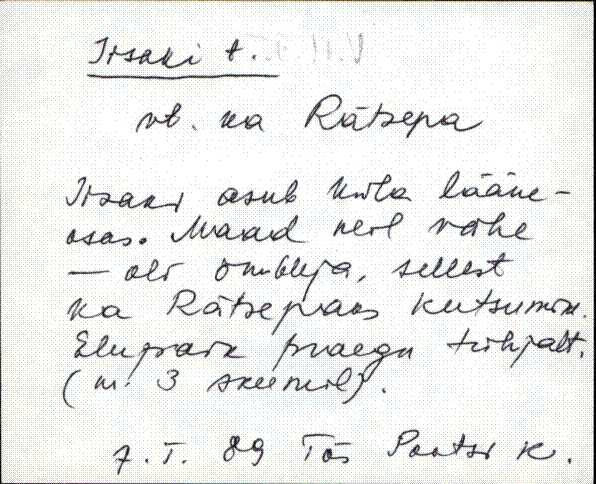 Irsaki t.
vt. ka Rätsepa
Irsaki asub küla lääne-
osas. Maad neil vähe
– oli õmbleja, sellest
ka Rätsepaks kutsumin.
Elupaik praegu tühjalt.
( nr. 3 skeemil).
7. I. 89 Tõs Pootsi k.